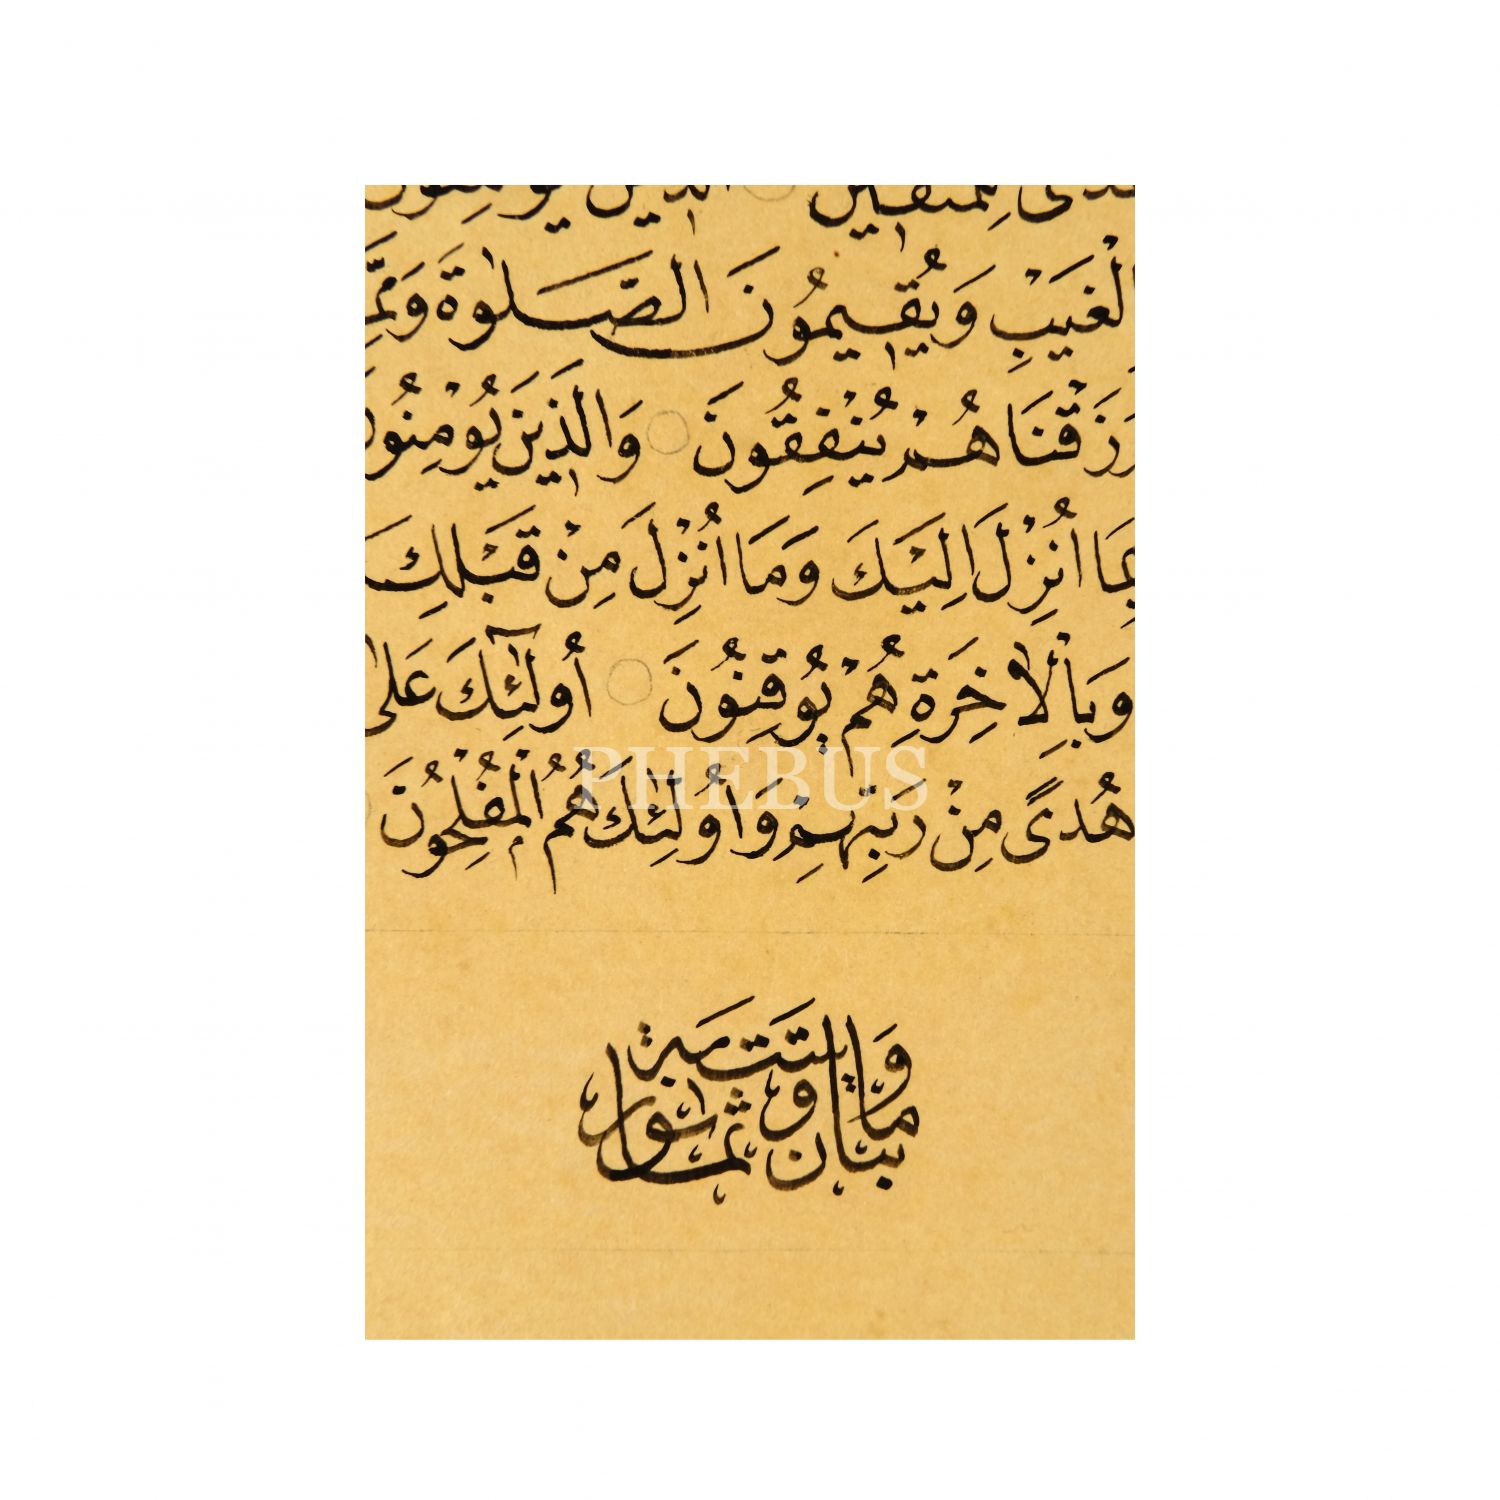 هُدًى لِلْمُتَّقِينَ الَّذِينَ يُؤْمِنُونَ
الْغَيْبِ وَيُقِيمُونَ الصَّلٰوةَ وَمِمَّا
رَزَقْنَاهُمْ يُنْفِقُونَ وَالَّذِينَ يُؤْمِنُونَ
بِمَا اُنْزِلَ اِلَيْكَ وَمَا اُنْزِلَ مِنْ قَبْلِكَ
وَبِالْاٰخِرَةِ هُمْ يُوقِنُونَ اُولٰٓئِكَ عَلٰى
هُدًى مِنْ رَبِّهِمْ وَاُولٰئِكَ هُمُ الْمُفْلِحُونَ
PHEBUS